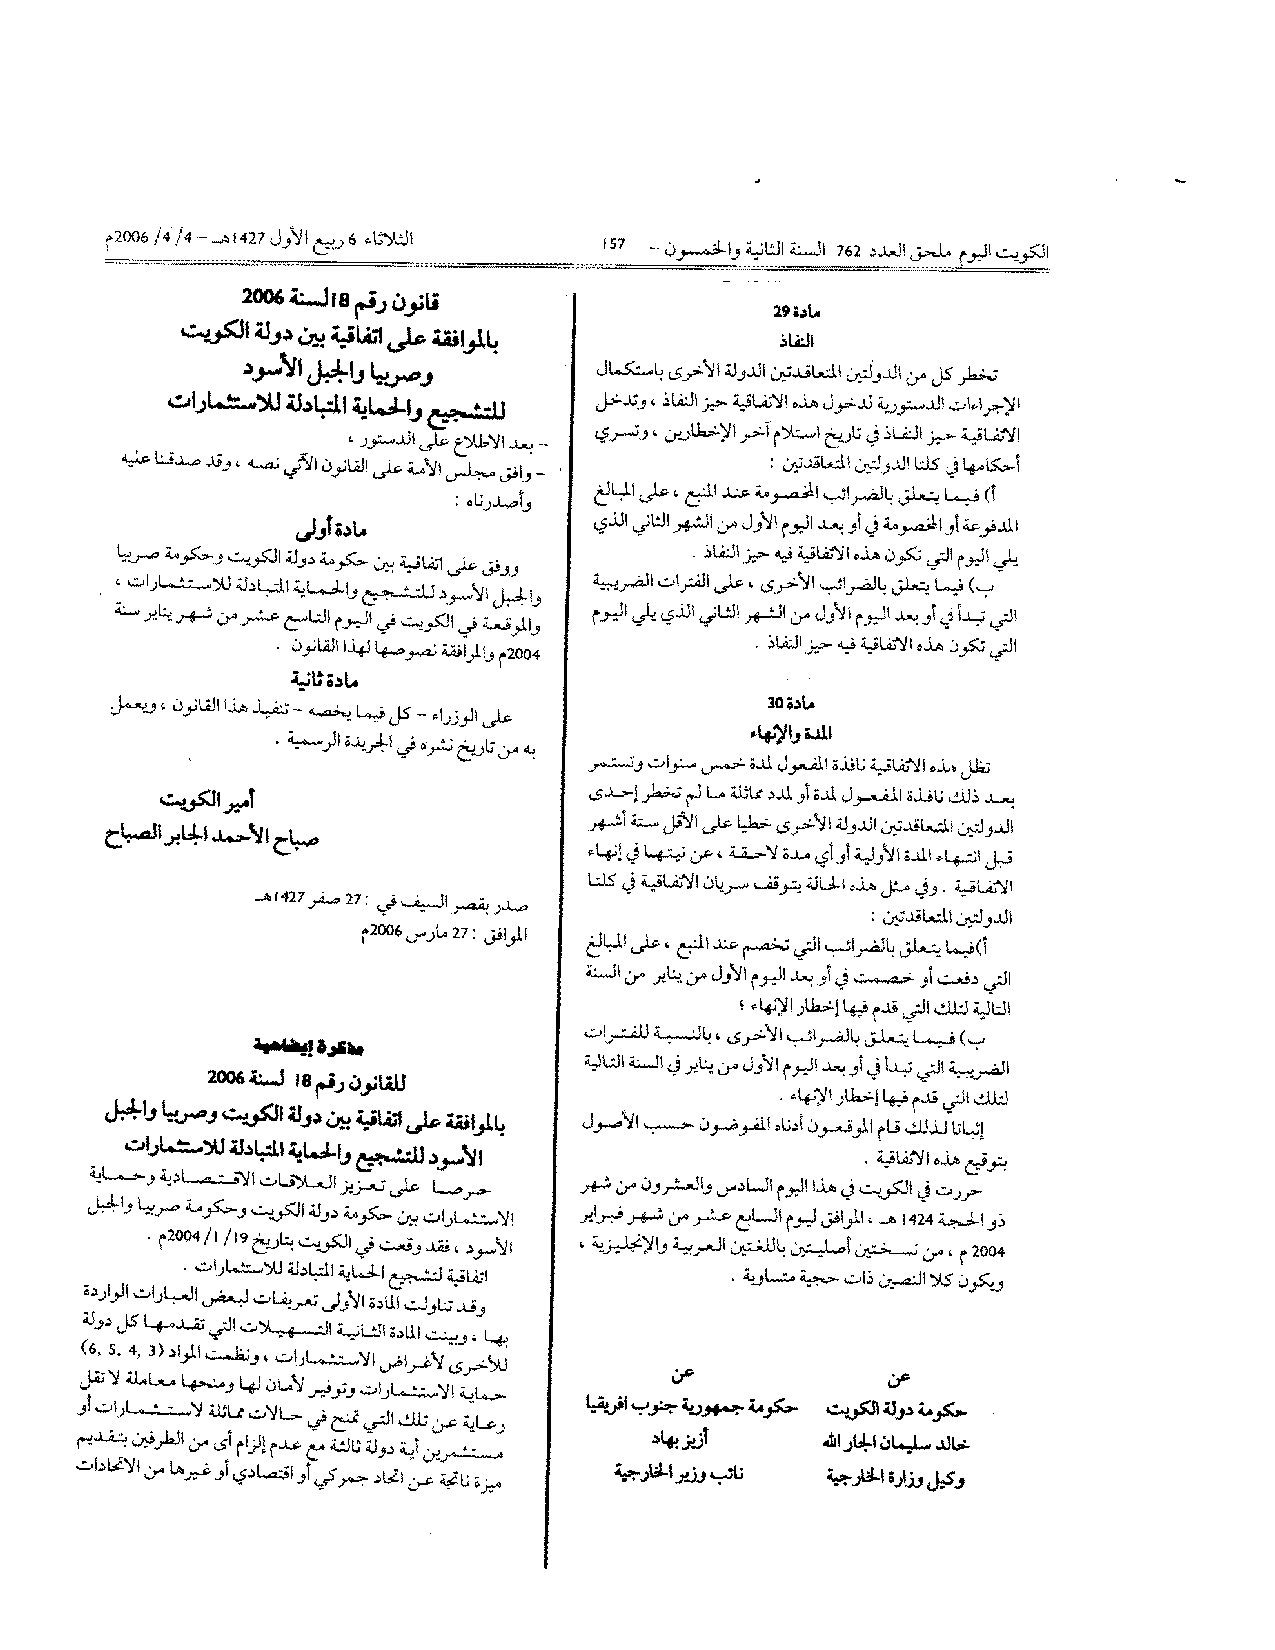 الكويت اليوم ملحق العدد 762 السنة الثانية والخمسون – 157
الثلاثاء 6 ربيع الأول 1427هـ – 4/ 4/ 2006م
مادة 29
النفاذ
تخطر كل من الدولتين المتعاقدتين الدولة الأخرى باستكمال
الإجراءات الدستورية لدخول هذه الاتفاقية حيز النفاذ ، وتدخل
الاتفاقية حيز النفاذ في تاريخ استلام آخر الإخطارين ، وتسري
أحكامها في كلتا الدولتين المتعاقدتين :
أ) فيما يتعلق بالضرائب المخصومة عند المنبع ، على المبالغ
المدفوعة أو المخصومة في أو بعد اليوم الأول من الشهر الثاني الذي
يلي اليوم التي تكون هذه الاتفاقية فيه حيز النفاذ .
ب) فيما يتعلق بالضرائب الأخرى ، على الفترات الضريبية
التي تبدأ في أو بعد اليوم الأول من الشهر الثاني الذي يلي اليوم
التي تكون هذه الاتفاقية فيه حيز النفاذ .
مادة 30
المدة والإنهاء
تظل هذه الاتفاقية نافذة المفعول لمدة خمس سنوات وتستمر
بعد ذلك نافذة المفعول لمدة أو لمدد مماثلة ما لم تخطر إحدى
الدولتين المتعاقدتين الدولة الأخرى خطيا على الأقل ستة أشهر
قبل انتهاء المدة الأولية أو أي مدة لاحقة ، عن نيتها في إنهاء
الاتفاقية . وفي مثل هذه الحالة يتوقف سريان الاتفاقية في كلتا
الدولتين المتعاقدتين :
أ)فيما يتعلق بالضرائب التي تخصم عند المنبع ، على المبالغ
التي دفعت أو خصمت في أو بعد اليوم الأول من يناير من السنة
التالية لتلك التي قدم فيها إخطار الإنهاء ؛
ب) فيما يتعلق بالضرائب الأخرى ، بالنسبة للفترات
الضريبية التي تبدأ في أو بعد اليوم الأول من يناير في السنة التالية
لتلك التي قدم فيها إخطار الإنهاء .
إثباتا لذلك قام الموقعون أدناه المفوضون حسب الأصول
بتوقيع هذه الاتفاقية .
حررت في الكويت في هذا اليوم السادس والعشرون من شهر
ذو الحجة 1424 هـ ، الموافق ليوم السابع عشر من شهر فبراير
2004 م ، من نسختين أصليتين باللغتين العربية والإنجليزية ،
ويكون كلا النصين ذات حجية متساوية .
عن عن
حكومة دولة الكويت حكومة جمهورية جنوب افريقيا
خالد سليمان الجار الله أزيز بهاد
وكيل وزارة الخارجية نائب وزير الخارجية
قانون رقم 18لسنة 2006
بالموافقة على اتفاقية بين دولة الكويت
وصربيا والجبل الأسود
للتشجيع والحماية المتبادلة للاستثمارات
- بعد الاطلاع على الدستور ،
- وافق مجلس الأمة على القانون الآتي نصه ، وقد صدقنا عليه
وأصدرناه :
مادة أولى
ووفق على اتفاقية بين حكومة دولة الكويت وحكومة صربيا
والجبل الأسود للتشجيع والحماية المتبادلة للاستثمارات ،
والموقعة في الكويت في اليوم التاسع عشر من شهر يناير سنة
2004م والمرافقة نصوصها لهذا القانون .
مادة ثانية
على الوزراء - كل فيما يخصه - تنفيذ هذا القانون ، ويعمل
به من تاريخ نشره في الجريدة الرسمية .
أمير الكويت
صباح الأحمد الجابر الصباح
صدر بقصر السيف في : 27 صفر 1427هـ
الموافق : 27 مارس 2006م
مذكرة إيضاحية
للقانون رقم 18 لسنة 2006
بالموافقة على اتفاقية بين دولة الكويت وصربيا والجبل
الأسود للتشجيع والحماية المتبادلة للاستثمارات
حرصا على تعزيز العلاقات الاقتصادية وحماية
الاستثمارات بين حكومة دولة الكويت وحكومة صربيا والجبل
الأسود ، فقد وقعت في الكويت بتاريخ 19/ 1/ 2004م .
اتفاقية لتشجيع الحماية المتبادلة للاستثمارات .
وقد تناولت المادة الأولى تعريفات لبعض العبارات الواردة
بها ، وبينت المادة الثانية التسهيلات التي تقدمها كل دولة
للأخرى لأغراض الاستثمارات ، ونظمت المواد (3 ,4 ,5 ,6)
حماية الاستثمارات وتوفير لأمان لها ومنحها معاملة لا تقل
رعاية عن تلك التي تمنح في حالات مماثلة لاستثمارات أو
مستثمرين أية دولة ثالثة مع عدم إلزام أى من الطرفين بتقديم
ميزة ناتجة عن اتحاد جمركي أو اقتصادي أو غيرها من الاتحادات